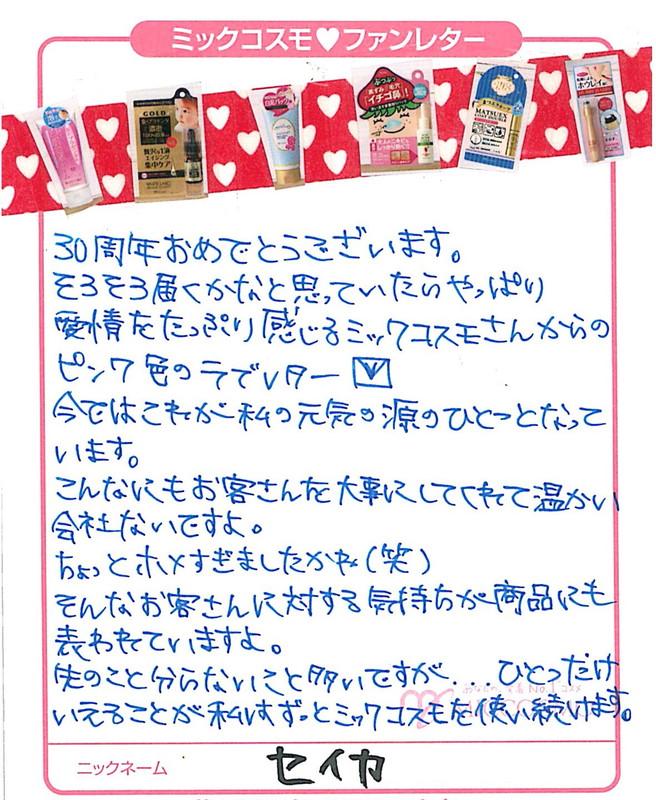 ミックコスモ♥ファンレター
GOLD
贅沢な1滴
エイジング
集中ケア
イチゴ鼻
MATSUEX
ホウレイ
30周年おめでとうございます。
そろそろ届くかなと思っていたらやっぱり
愛情をたっぷり感じるミックコスモさんからの
ピンク色のラブレター
今ではこれが私の元気の源のひとつとなって
います。
こんなにもお客さんを大事にしてくれて温かい
会社ないですよ。
ちょっとホメすぎましたかね(笑)
そんなお客さんに対する気持ちが商品にも
表われていますよ。
先のこと分らないこと多いですが...ひとつだけ
いえることが私はずっとミックコスモを使い続けます。
ニックネーム
セイカ